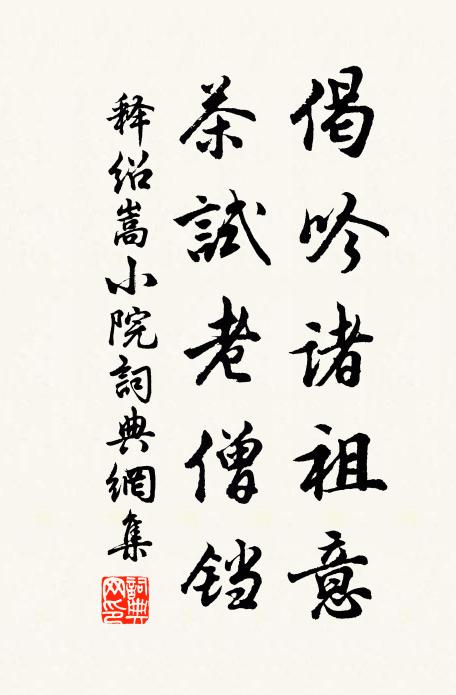 偈吟诸祖意
茶試老僧铛
释绍嵩小院詞典網集
詞典網印